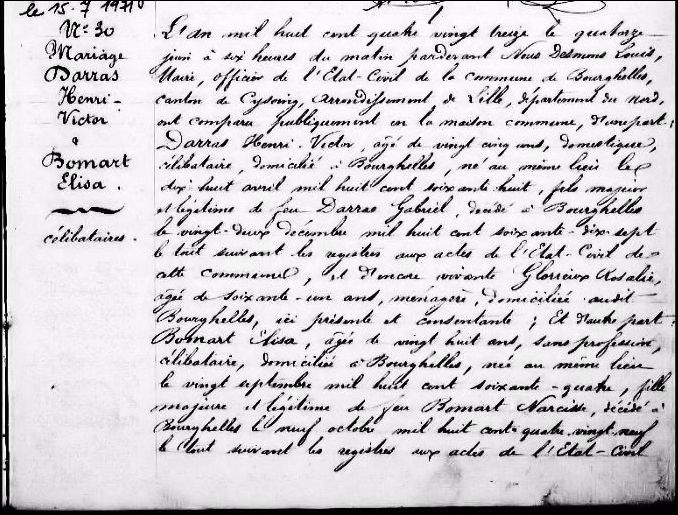 le 15.7.1971
N° 30
Mariage
Darras
Henri-
Victor
à
Bomart
Elisa.
célibataires.
L'an mil huit cent quatre vingt treize le quatorze
juin à six heures du matin pardevant Nous Desmons Louis,
Maire, officier de l'Etat-Civil de la commune de Bourghelles,
canton de Cysoing, arrondissement de Lille, département du nord,
ont comparu publiquement en la maison commune, d'une part:
Darras Henri-Victor, âgé de vingt cinq ans, domestique,
célibataire, domicilié à Bourghelles, né au même lieu le
dix huit avril mil huit cent soixante huit, fils majeur
et légitime de feu Darras Gabriel, décédé à Bourghelles
le vingt-deux décembre mil huit cent soixante-dix-sept
le tout suivant les registres aux actes de l'Etat-Civil de
cette commune, et d'encore vivante Glorieux Rosalie,
âgée de soixante-un ans, ménagère, domiciliée audit
Bourghelles, ici présente et consentante; Et d'autre part:
Bomart Elisa, âgée de vingt huit ans, sans profession,
célibataire, domiciliée à Bourghelles, née au même lieu
le vingt septembre mil huit cent soixante-quatre, fille
majeure et légitime de feu Bomart Narcisse, décédé à
Bourghelles le neuf octobre mil huit cent quatre-vingt-neuf
le tout suivant les registres aux actes de l'Etat-Civil